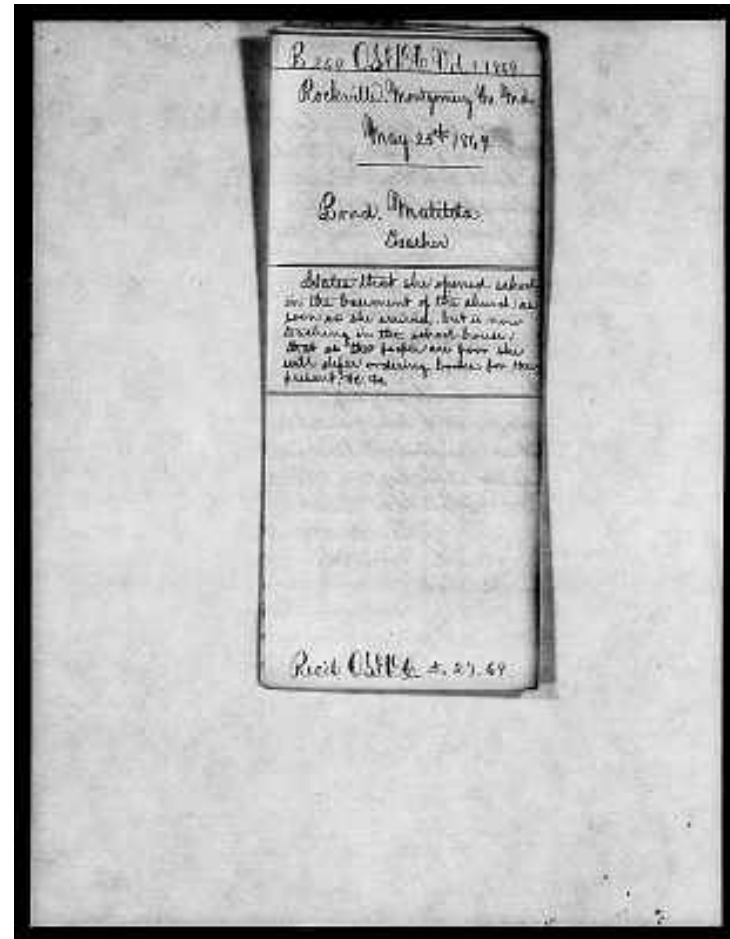 B 260 Vol. 1 1869
Rockville. Montgomery Co Md.
May 25th 1869
Bond. Matilda
Teacher
States that she opened school
in the basement of the church as
soon as she arrived, but is now
teaching in the school house;
that as the people are poor she
will defer ordering books for the
present, &c &c
Rec'd 27. 69